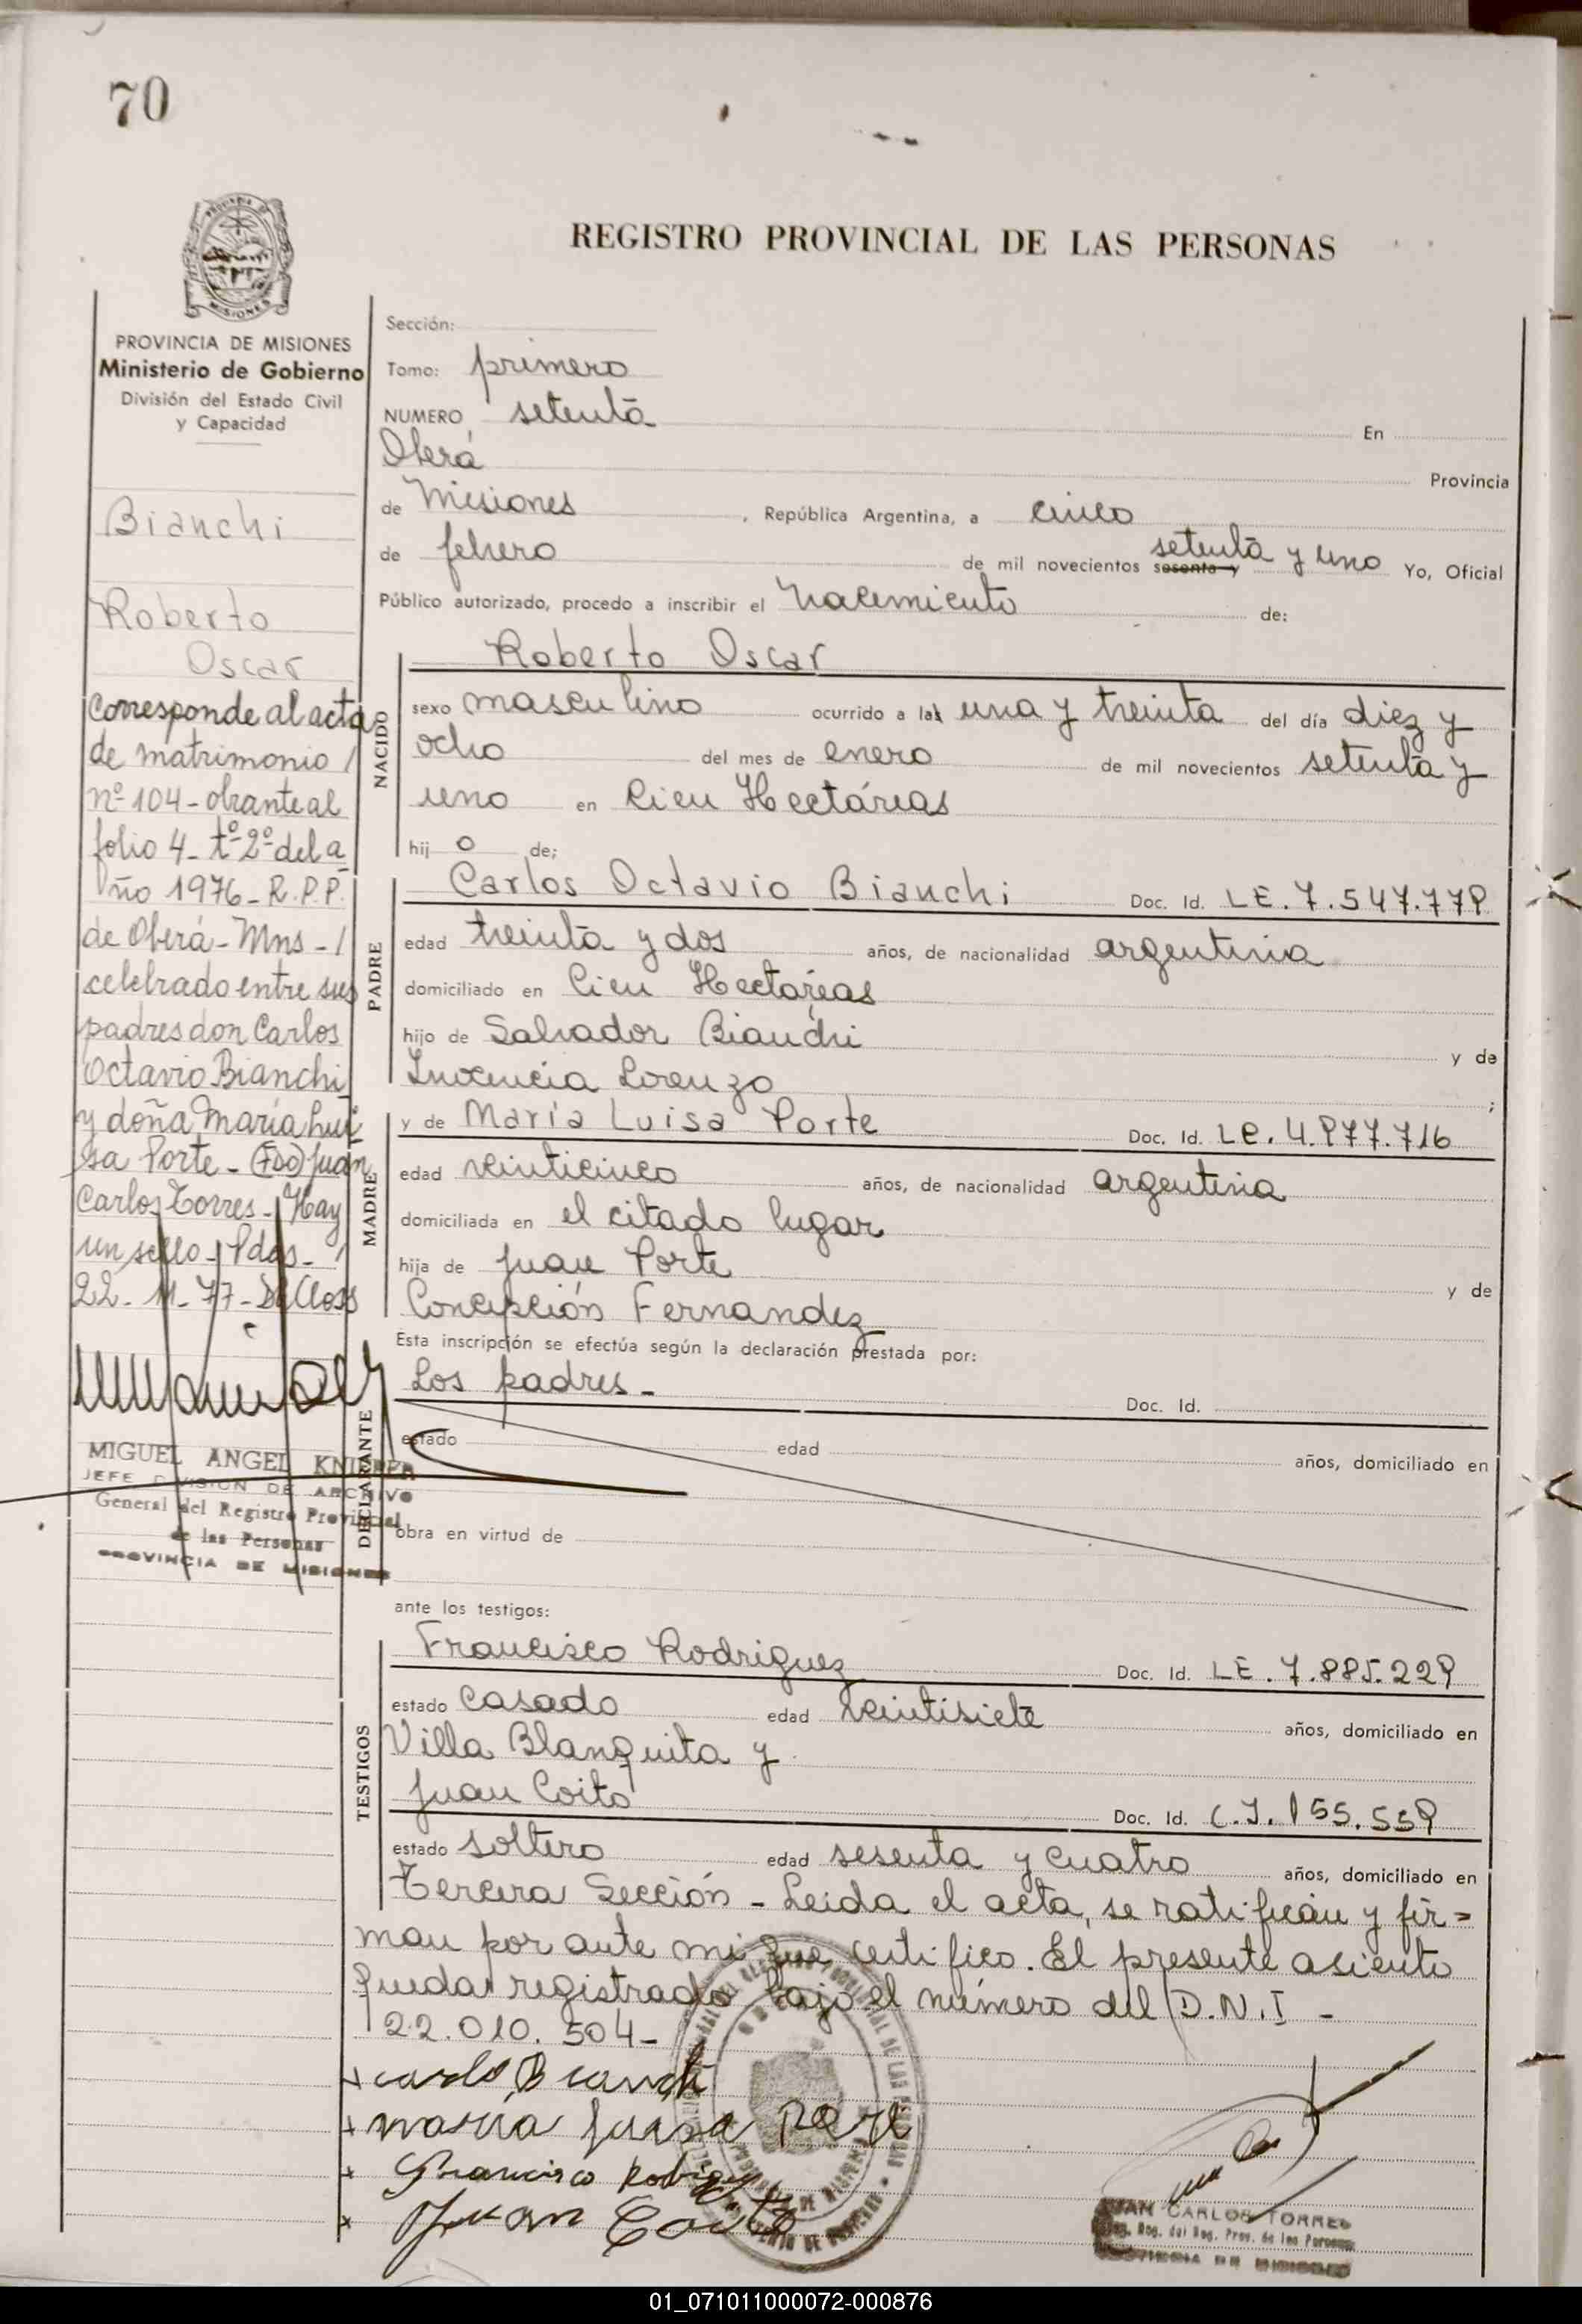 70
REGISTRO PROVINCIAL DE LAS PERSONAS
MISIONES
PROVINCIA DE MISIONES
Ministerio de Gobierno
División del Estado Civil
y Capacidad
Bianchi
Roberto
Oscar
Corresponde al acta
de matrimonio /
nº 104 - obrante al
folio 4 - tº 2º del a
ño 1976 - R.P.P.
de Oberá - Mns - /
celebrado entre sus
padres don Carlos
Octavio Bianchi
y doña María Lui
sa Porte - (Fdo) Juan
Carlos Torres - Hay
un sello - Pdas - /
22 - 11 - 77 -
MIGUEL ANGEL
JEFE DIVISION DE ARCHIVO
General del Registro Provincial
de las Personas
PROVINCIA DE MISIONES
Sección:
Tomo: primero
NUMERO setenta
En
Oberá
Provincia
de Misiones , República Argentina, a cinco
de febrero de mil novecientos sesenta y setenta y uno Yo, Oficial
Público autorizado, procedo a inscribir el nacimiento de:
NACIDO
Roberto Oscar
sexo masculino ocurrido a las una y treinta del día diez y
ocho del mes de enero de mil novecientos setenta y
uno en Cien Hectáreas
hij o de;
PADRE
Carlos Octavio Bianchi Doc. Id. LE. 7.547.779
edad treinta y dos años, de nacionalidad argentina
domiciliado en Cien Hectáreas
hijo de Salvador Bianchi y de
Inocencia Lorenzo ;
MADRE
y de María Luisa Porte Doc. Id. LC. 4.977.716
edad veinticinco años, de nacionalidad argentina
domiciliada en el citado lugar
hija de Juan Porte y de
Concepción Fernandez
Esta inscripción se efectúa según la declaración prestada por:
DECLARANTE
Los padres - Doc. Id.
estado edad años, domiciliado en
obra en virtud de
ante los testigos:
TESTIGOS
Francisco Rodriguez Doc. Id. LE. 7.885.229
estado casado edad veintisiete años, domiciliado en
Villa Blanquita y
Juan Coito Doc. Id. C.I. 155.559
estado soltero edad sesenta y cuatro años, domiciliado en
Tercera Sección - Leida el acta, se ratifican y fir=
man por ante mi que certifico. El presente asiento
queda registrado bajo el número del D.N.I -
22.010.504-
Carlo Bianchi
maria luisa
Francisco Rodriguez
Juan Coito
JUAN CARLOS TORRES
PROVINCIA DE MISIONES
01_071011000072-000876